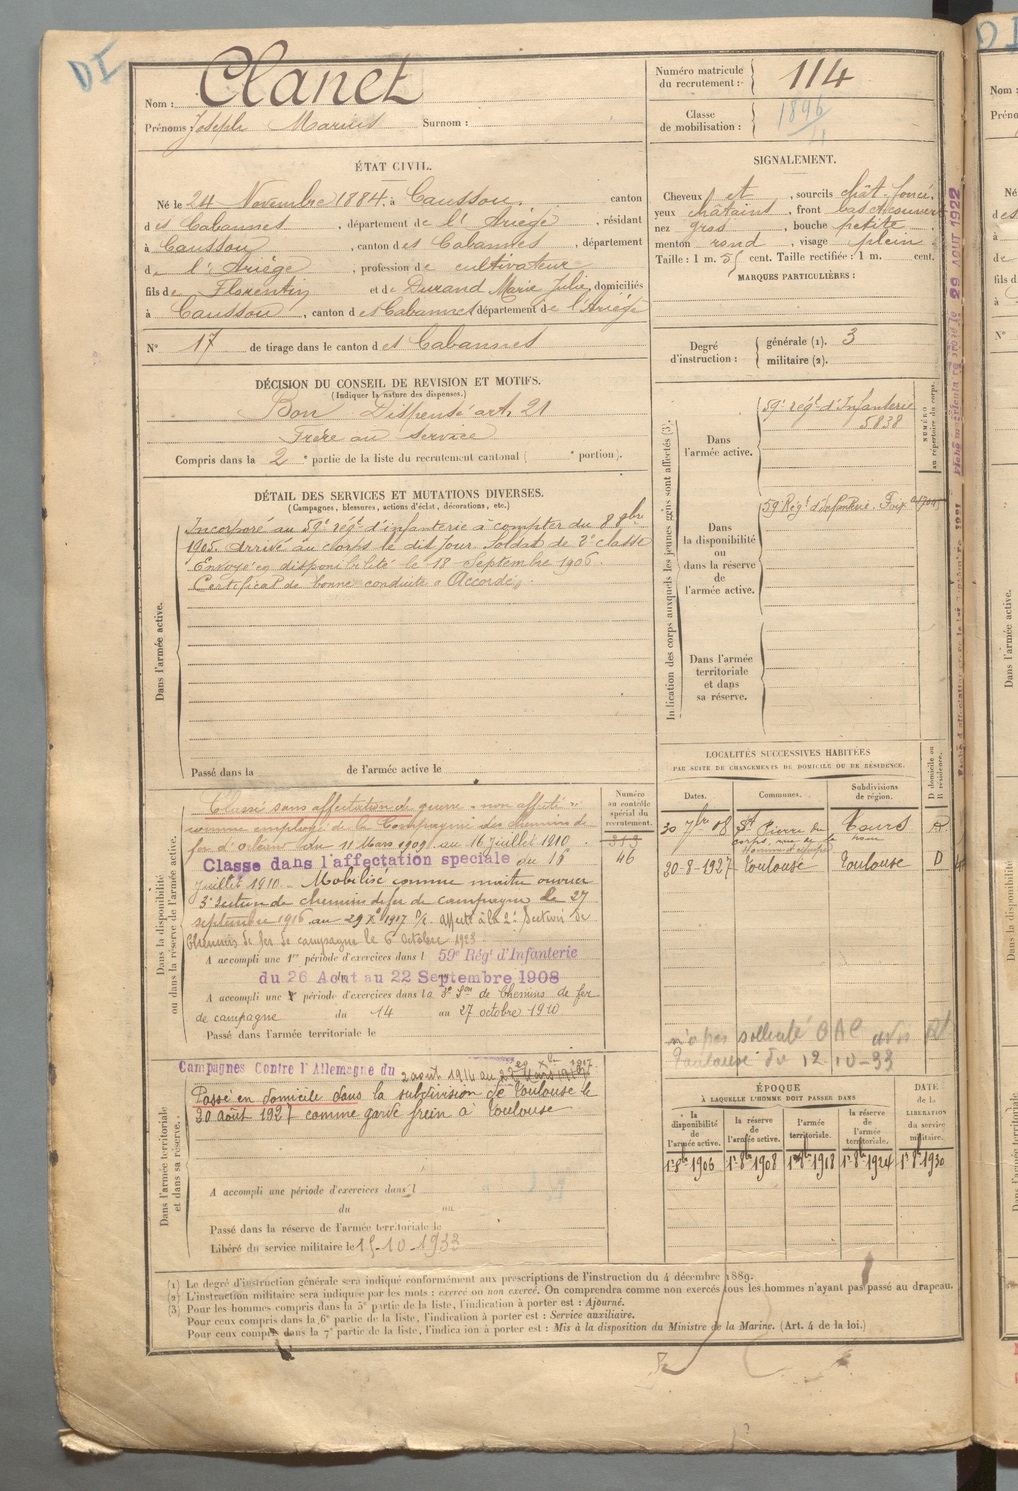 DI
Nom : Clanet
Prénoms Joseph Marius Surnom :
Numéro matricule du recrutement : 114
Classe de mobilisation : 1896
ÉTAT CIVIL.
Né le 24 Novembre 1884 à Caussou, canton
des Cabannes, département de l'Ariège, résidant
à Caussou, canton des Cabannes, département
de l'Ariège, profession de cultivateur
fils de Florentin et de Durand Marie Julie, domiciliés
à Caussou, canton des Cabannes département de l'Ariège
N° 17 de tirage dans le canton des Cabannes
SIGNALEMENT.
Cheveux et, sourcils chât. foncé,
yeux châtains, front bas découvert
nez gros, bouche petite,
menton rond, visage plein
Taille : 1 m. 55 cent. Taille rectifiée : 1 m. cent.
MARQUES PARTICULIÈRES :
Degré d'instruction : générale (1). 3
militaire (2).
DÉCISION DU CONSEIL DE REVISION ET MOTIFS.
(Indiquer la nature des dispenses.)
Bon Dispensé art. 21
Frère au service
Compris dans la 2e partie de la liste du recrutement cantonal ( e portion).
DÉTAIL DES SERVICES ET MUTATIONS DIVERSES.
(Campagnes, blessures, actions d'éclat, décorations, etc.)
Dans l'armée active.
Incorporé au 59e régt d'infanterie à compter du 8 8bre
1905. Arrivé au corps le dit jour. Soldat de 2e classe
Envoyé en disponibilité le 18 Septembre 1906.
Certificat de bonne conduite « Accordé ».
Passé dans la de l'armée active le
Indication des corps auxquels les jeunes gens sont affectés (3).
NUMÉRO au répertoire du corps.
Dans l'armée active.
59e régt d'Infanterie
5838
Dans la disponibilité ou dans la réserve de l'armée active.
59e Régt d'Infanterie Foix
Dans l'armée territoriale et dans sa réserve.
29 AOUT 1922
LOCALITÉS SUCCESSIVES HABITÉES
PAR SUITE DE CHANGEMENTS DE DOMICILE OU DE RÉSIDENCE.
Dates. Communes. Subdivisions de région. D domicile ou R résidence.
30 7bre 08 St Pierre des corps, rue de la Tours R
30-8-1927 Toulouse Toulouse D
n'a pas sollicité avis
Toulouse du 12-10-33
Dans la disponibilité ou dans la réserve de l'armée active.
Numéro au contrôle spécial du recrutement.
313
46
Classé sans affectation de guerre « non affecté »
comme employé de la Compagnie des chemins de
fer d'Orléans du 11 Mars 1909 au 16 juillet 1910.
Classe dans l'affectation speciale du 16
juillet 1910. Mobilisé comme maître ouvrier
3e Section de chemins de fer de campagne le 27
septembre 1916 au 29 Xbre 1917. Affecté à la 2e Section de
Chemins de fer de campagne le 6 octobre 1923.
A accompli une 1re période d'exercices dans l 59e Régt d'Infanterie
du 26 Août au 22 Septembre 1908
A accompli une période d'exercices dans la 3e Son de Chemins de fer
de campagne du 14 au 27 octobre 1910
Passé dans l'armée territoriale le
Dans l'armée territoriale et dans sa réserve.
Campagnes Contre l'Allemagne du 2 août 1914 au
Passé en domicile dans la subdivision de Toulouse le
30 août 1927 comme garde frein à Toulouse
A accompli une période d'exercices dans l
du au
Passé dans la réserve de l'armée territoriale le
Libéré du service militaire le 15-10-1933
ÉPOQUE
À LAQUELLE L'HOMME DOIT PASSER DANS
DATE de la LIBÉRATION du service militaire.
la disponibilité de l'armée active. la réserve de l'armée active. l'armée territoriale. la réserve de l'armée territoriale.
1er 8bre 1906 1er 8bre 1908 1er 8bre 1918 1er 8bre 1924 1er 8bre 1930
(1) Le degré d'instruction générale sera indiqué conformément aux prescriptions de l'instruction du 4 décembre 1889.
(2) L'instruction militaire sera indiquée par les mots : exercé ou non exercé. On comprendra comme non exercés tous les hommes n'ayant pas passé au drapeau.
(3) Pour les hommes compris dans la 5e partie de la liste, l'indication à porter est : Ajourné.
Pour ceux compris dans la 6e partie de la liste, l'indication à porter est : Service auxiliaire.
Pour ceux compris dans la 7e partie de la liste, l'indication à porter est : Mis à la disposition du Ministre de la Marine. (Art. 4 de la loi.)